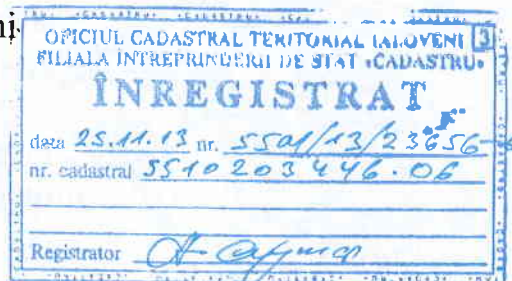 OFICIUL CADASTRAL TERITORIAL IALOVENI 3
FILIALA ÎNTREPRINDERII DE STAT "CADASTRU"
ÎNREGISTRAT
data 25.11.13 nr. 5501/13/23656
nr. cadastral 5510203446.06
Registrator